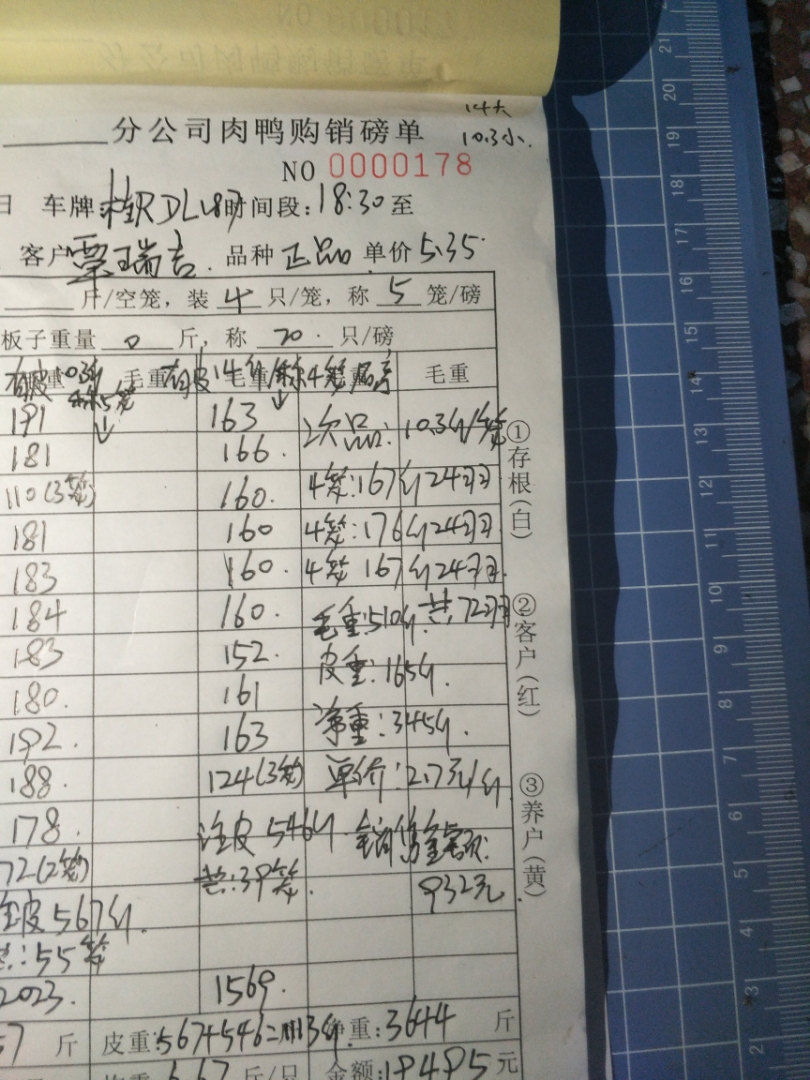 14大
10.3小.
分公司肉鸭购销磅单
NO 0000178
日 车牌: 时间段: 18:30 至
客户 覃瑞吉. 品种 正品 单价 5.35
斤/空笼, 装 4 只/笼, 称 5 笼/磅
板子重量 0 斤, 称 20. 只/磅
毛重 毛重 毛重
191 163 次品: 10.3斤/笼
181 166.
110(3笼) 160. 4笼: 167斤 24只
181 160 4笼: 176斤 24只
183 160. 4笼 167斤 24只.
184 160. 毛重: 510斤. 共72只
183 152. 皮重: 165斤.
180. 161
192. 163 净重: 345斤.
188. 124(3笼) 单价: 2.7元/斤
178. 皮 546斤. 销售金额:
72(2笼) 共: 39笼. 932元.
皮 567斤.
共: 55笼
2023. 1569.
斤 皮重: 567+546=1113斤 净重: 3644 斤
6.67 斤/只 金额: 19495 元
①存根(白)
②客户(红)
③养户(黄)
21
20
19
18
17
16
15
14
13
12
11
10
9
8
7
6
5
4
3
2